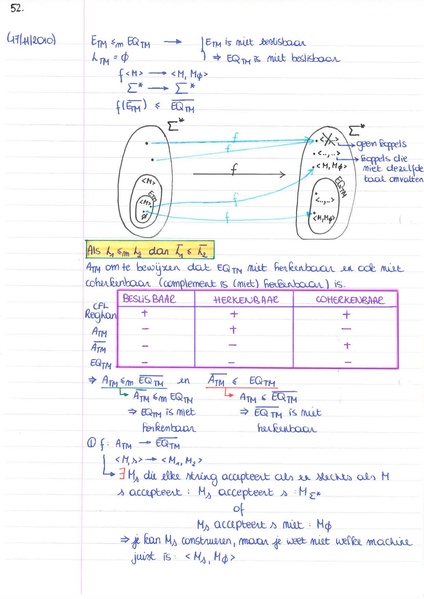 52.
(17/11/2010)
E_TM ≤m EQ_TM → E_TM is niet beslisbaar
L_TM = ∅ ⇒ EQ_TM is niet beslisbaar
f <M> → <M, M∅>
Σ* → Σ*
f(E̅_TM) ≤ E̅Q̅_TM
Σ* Σ*
f <X> → geen koppels
f • <..,..> → koppels die
<M> f <M, M∅> niet dezelfde
E_TM f EQ_TM taal omvatten
<M> • <..,..>
∅ f • <M, M∅>
Als L₁ ≤m L₂ dan L̅₁ ≤ L̅₂
A_TM om te bewijzen dat EQ_TM niet herkenbaar en ook niet
coherkenbaar (complement is (niet) herkenbaar) is.
BESLISBAAR HERKENBAAR COHERKENBAAR
CFL
Reg + + +
A_TM − + −
A̅_TM − − +
EQ_TM − − −
⇒ A_TM ≤m E̅Q̅_TM en A̅_TM ≤ EQ_TM
↳ A̅_TM ≤m EQ_TM ↳ A_TM ≤ E̅Q̅_TM
⇒ EQ_TM is niet ⇒ E̅Q̅_TM is niet
herkenbaar herkenbaar
① f: A_TM → E̅Q̅_TM
<M,s> → <M₁, M₂>
↳ ∃ Ms die elke string accepteert als en slechts als M
s accepteert : Ms accepteert s : M_Σ*
of
Ms accepteert s niet : M∅
⇒ je kan Ms construeren, maar je weet niet welke machine
juist is : <Ms, M∅>